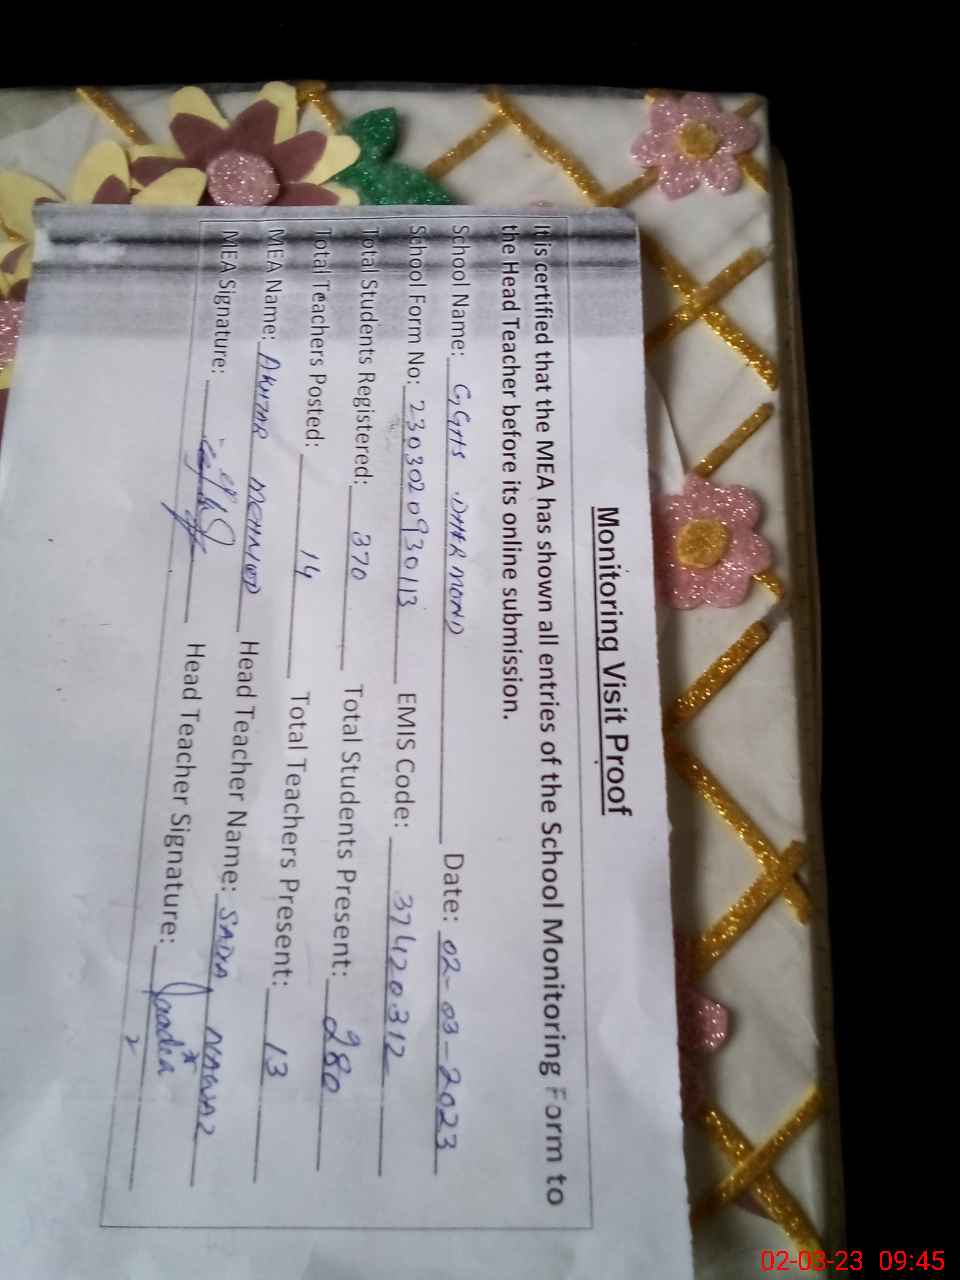 Monitoring Visit Proof
It is certified that the MEA has shown all entries of the School Monitoring Form to
the Head Teacher before its online submission.
School Name: GGHS DHERMOND Date: 02-03-2023
School Form No: 2303020930113 EMIS Code: 37420312
Total Students Registered: 370 Total Students Present: 280
Total Teachers Posted: 14 Total Teachers Present: 13
MEA Name: AKHTAR MEHMOOD Head Teacher Name: SADIA NAWAZ
MEA Signature: Head Teacher Signature: Saadia
02-03-23 09:45